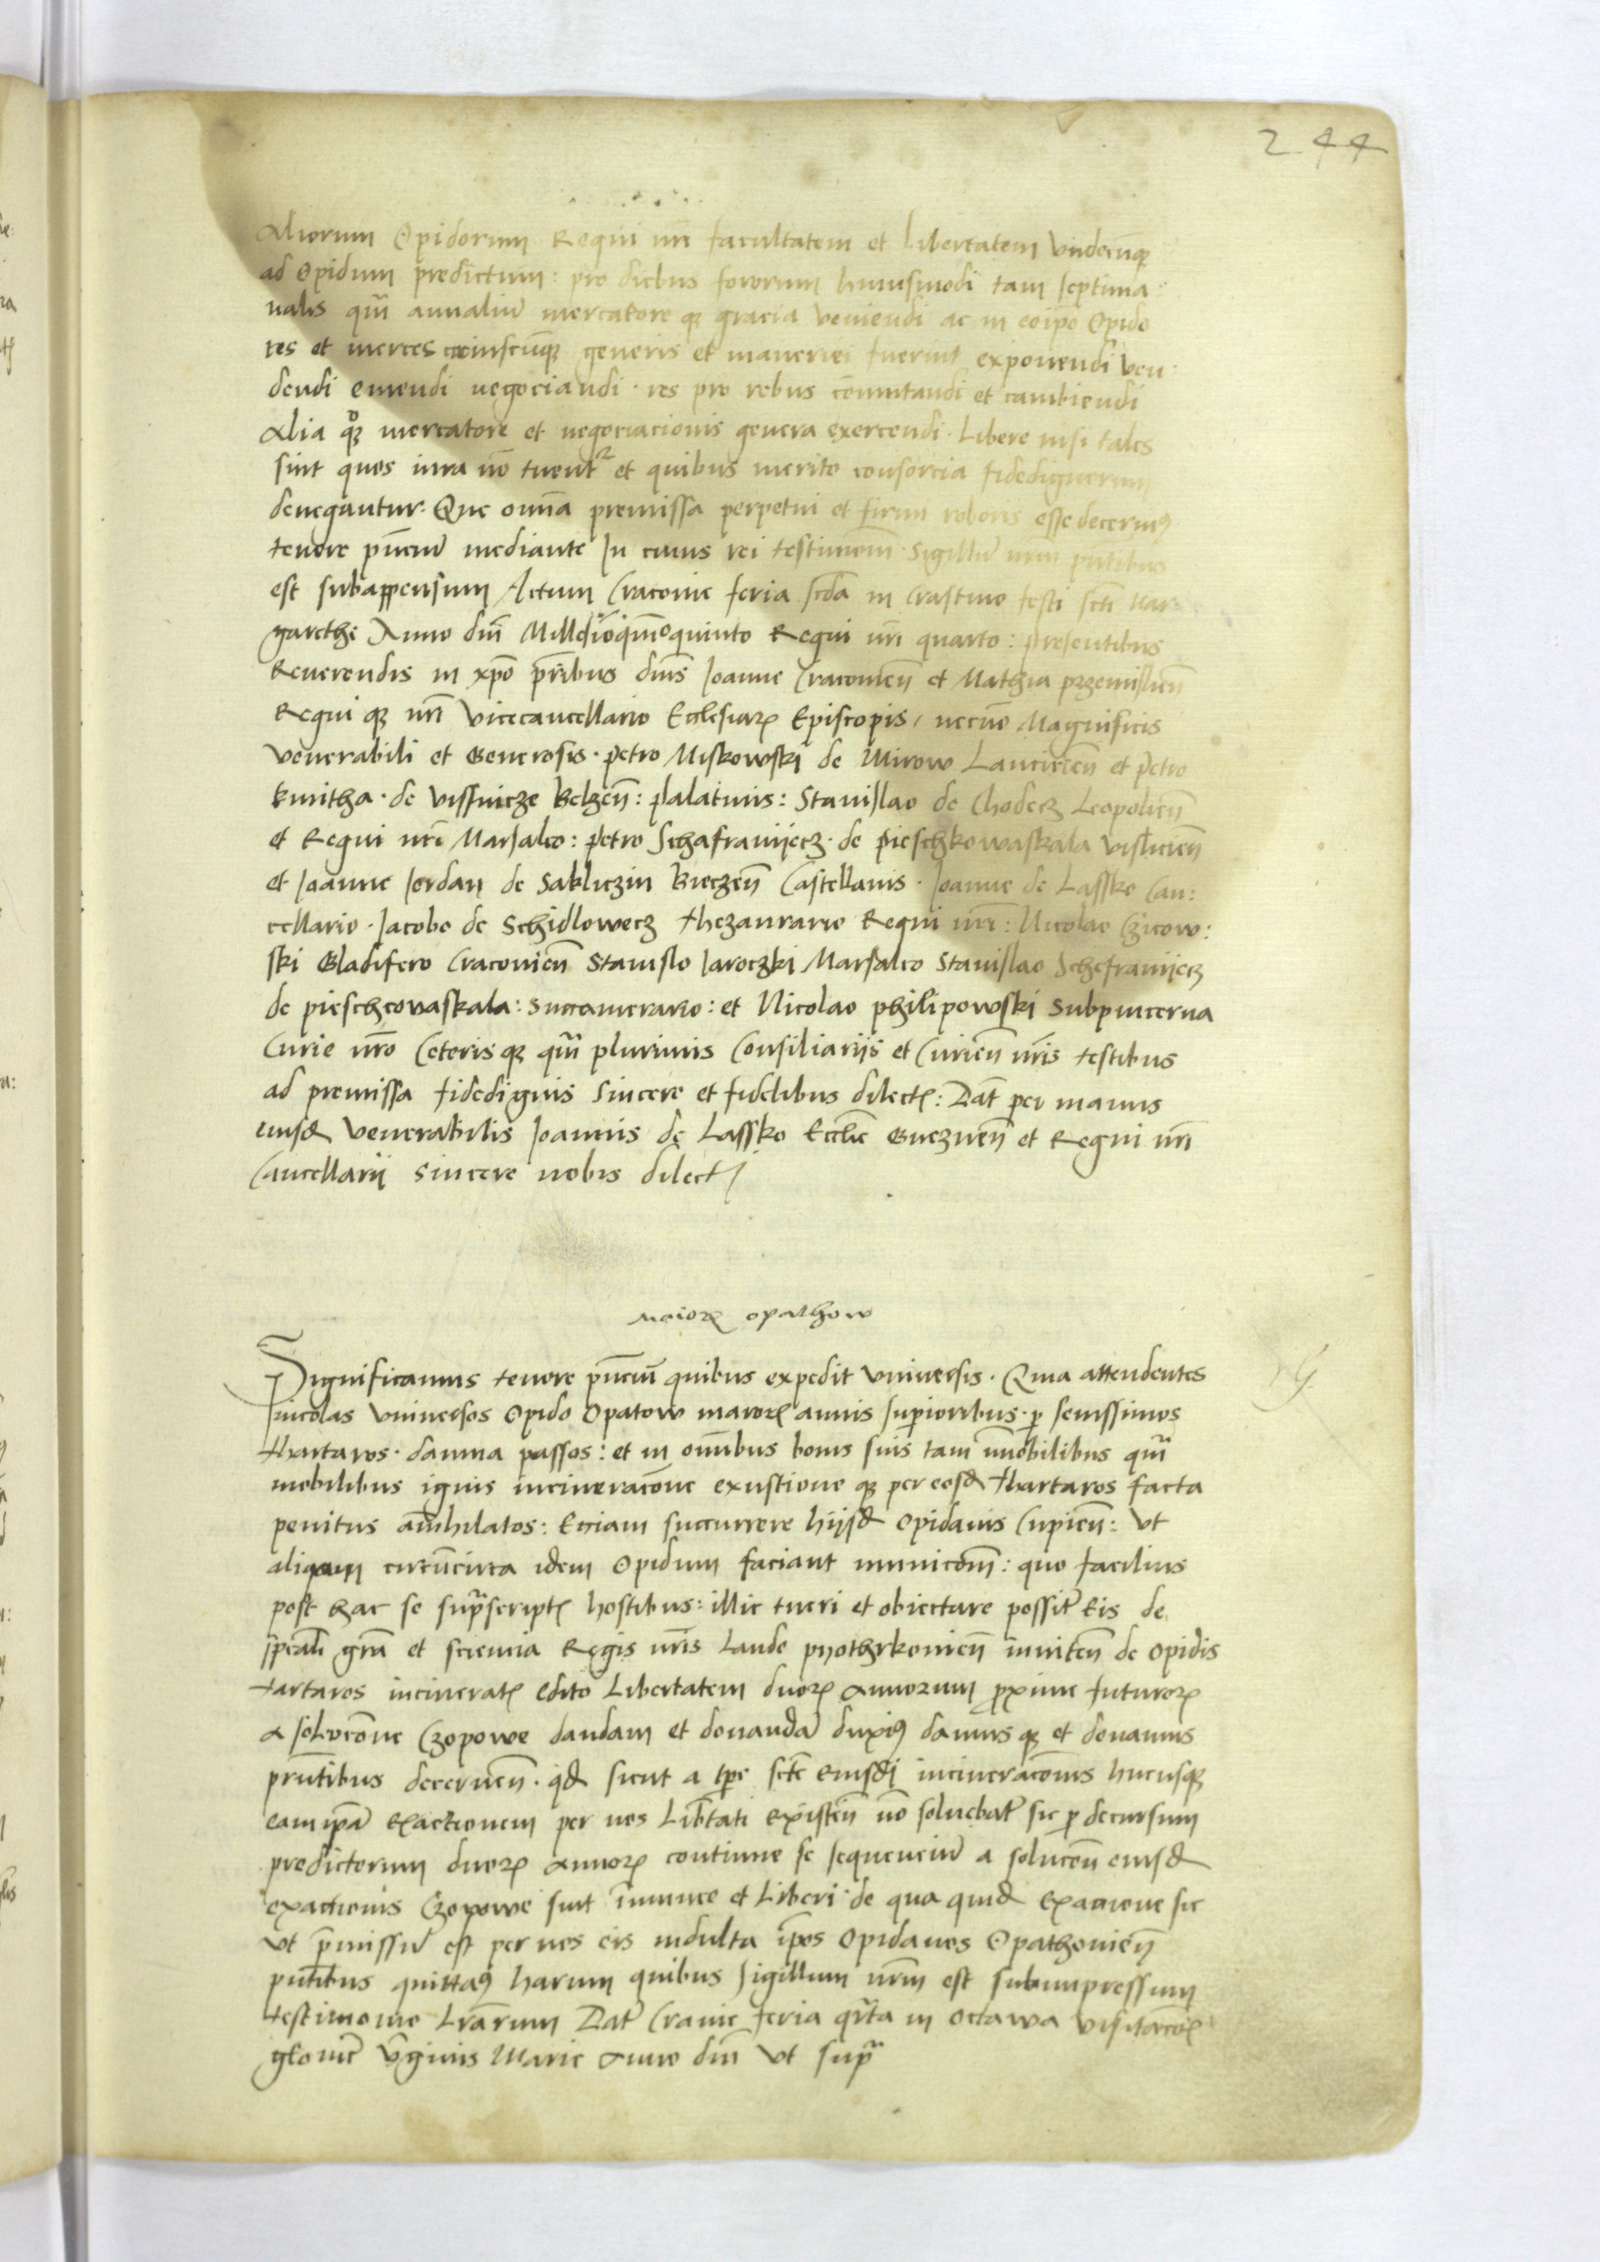 244
Aliorum Opidorum Regni nri facultatem et Libertatem Vndecunqz
ad Opidum predictum: pro diebus fororum huiusmodi tam septima
nalis qm annaliu mercatore qz gracia veniendi ac in eoipo Opido
res et merces cuiuscunqz generis et maneriei fuerint exponendi ven
dendi emendi negociandi. res pro rebus comutandi et cambiendi
Alia qz mercatore et negociacionis genera exercendi. Libere nisi tales
sint quos iura no tuent et quibus merito consorcia fidedignorum
denegantur. Que omna premissa perpetui et firmi roboris esse decernim9
tenore pnciu mediante In cuius rei testimonm. Sigillu nrm pntibus
est subappensum Actum Cracouie feria scda in Crastino festi scti Mar
garethe Anno dni Milloqumoquinto Regni nri quarto: presentibus
Reuerendis in xpo pribus dnis Joanne Cracouien et Mathia przemislien
Regni qz nri Vicecancellario Ecclesiarz Episcopis, necno Magnificis
Venerabili et Generosis. Petro Miskowski de Mirow Lancicien et Petro
Kmitha. de Vissnicze Belzen: Palatinis: Stanislao de Choderz Leopolien
et Regni nri Marsalco: Petro Schafranijecz. de Pieschkowaskala Vislicien
et Joanne Jordan de Sakliczin Bieczen Castellanis. Joanne de Lassko Can:
cellario. Jacobo de Schidlowecz Thezaurario Regni nri: Nicolao Czicow:
ski Gladifero Cracouien Stanislo Jaroczki Marsalco Stanislao Schefranijecz
de pieschcowaskala: Succamerario: et Nicolao philipowski Subpincerna
Curie nro Ceteris qz qm plurimis Consiliariis et Curien nris testibus
ad premissa fidedignis Sincere et fidelibus dilect: Dat per manus
eiusd Venerabilis Joannis de Lassko Ecclie Gneznen et Regni nri
Cancellarii Sincere nobis dilect
Maiorz opathow
Significamus tenore pnciu quibus expedit Vniuersis. Quia attendentes
Incolas Vniuersos Opido Opatow maiorz annis superioribus. p seuissimos
Thartaros. damna passos: et in omibus bonis suis tam imobilibus qm
mobilibus ignis incineracone exustione qz per eosd Thartaros facta
penitus annihilatos: Eciam succurrere hijsd Opidanis Cupien: Vt
aliquam circucirca idem Opidum faciant municom: quo facilius
post hac se suprascript hostibus: illic tueri et obiectare possit Eis de
speali gra et sciencia Regis nris Laudo pyothrkonien inniten de Opidis
tartaros incinerat edito Libertatem duorz Annorum proxime futurorz
a solucone Czopowe dandam et donanda duxim9 damus qz et donamus
pntibus decernen. qd sicut a tpe scte eiusdi incineraconis hucusqz
eam ipa Exactionem per nos Libtati existen no soluebat sic p decursum
predictorum duorz Annorz continue se sequenciu a solucen eiusd
exactionis Czopowe sint imunes et Liberi. de qua quid exactione sic
Vt pmissu est per nos eis indulta ipos Opidanos Opathouien
pntibus quittam9 harum quibus Sigillum nrm est subimpressum
testimonio Lrarum Dat Cracie feria qrta in octawa Visitacois
gloriose Vginis Marie Anno dni Vt supra